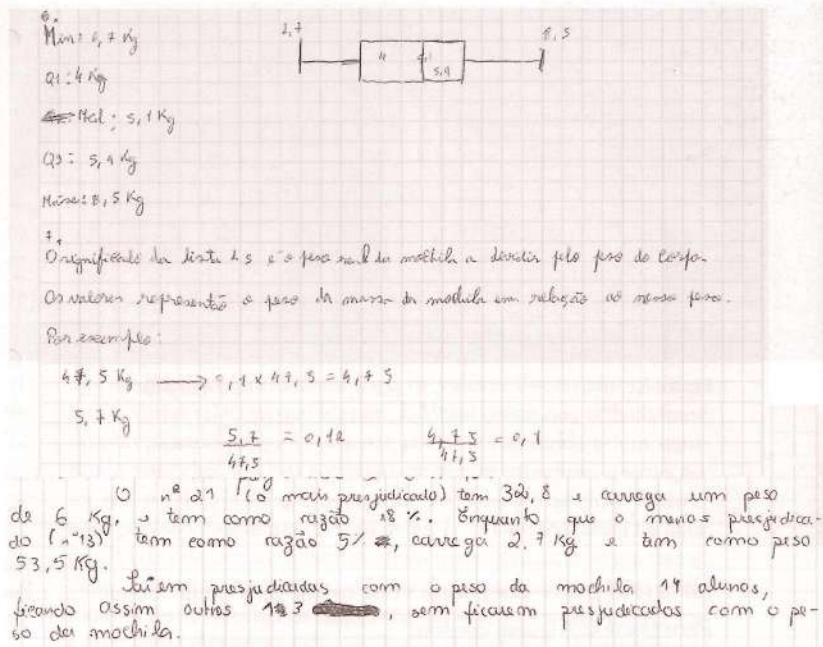 6.
Min: 2,7 Kg
2,7
8,5
4
5,1
5,9
Q1: 4 Kg
Med: 5,1 Kg
Q3: 5,9 Kg
Máx: 8,5 Kg
7.
O significado da lista L5 é o peso real da mochila a dividir pelo peso do corpo.
Os valores representão o peso da massa da mochila em relação ao nosso peso.
Por exemplo:
47,5 Kg → 0,1 x 47,5 = 4,75
5,7 Kg
5,7 / 47,5 = 0,12 4,75 / 47,5 = 0,1
O nº 21 (o mais presjudicado) tem 32,8 e carrega um peso
de 6 Kg, e tem como razão 18 %. Enquanto que o menos presjudica-
do (nº13) tem como razão 5%, carrega 2,7 Kg e tem como peso
53,5 Kg.
Saiem presjudicadas com o peso da mochila 14 alunos,
ficando assim outros 13, sem ficarem presjudecados com o pe-
so da mochila.